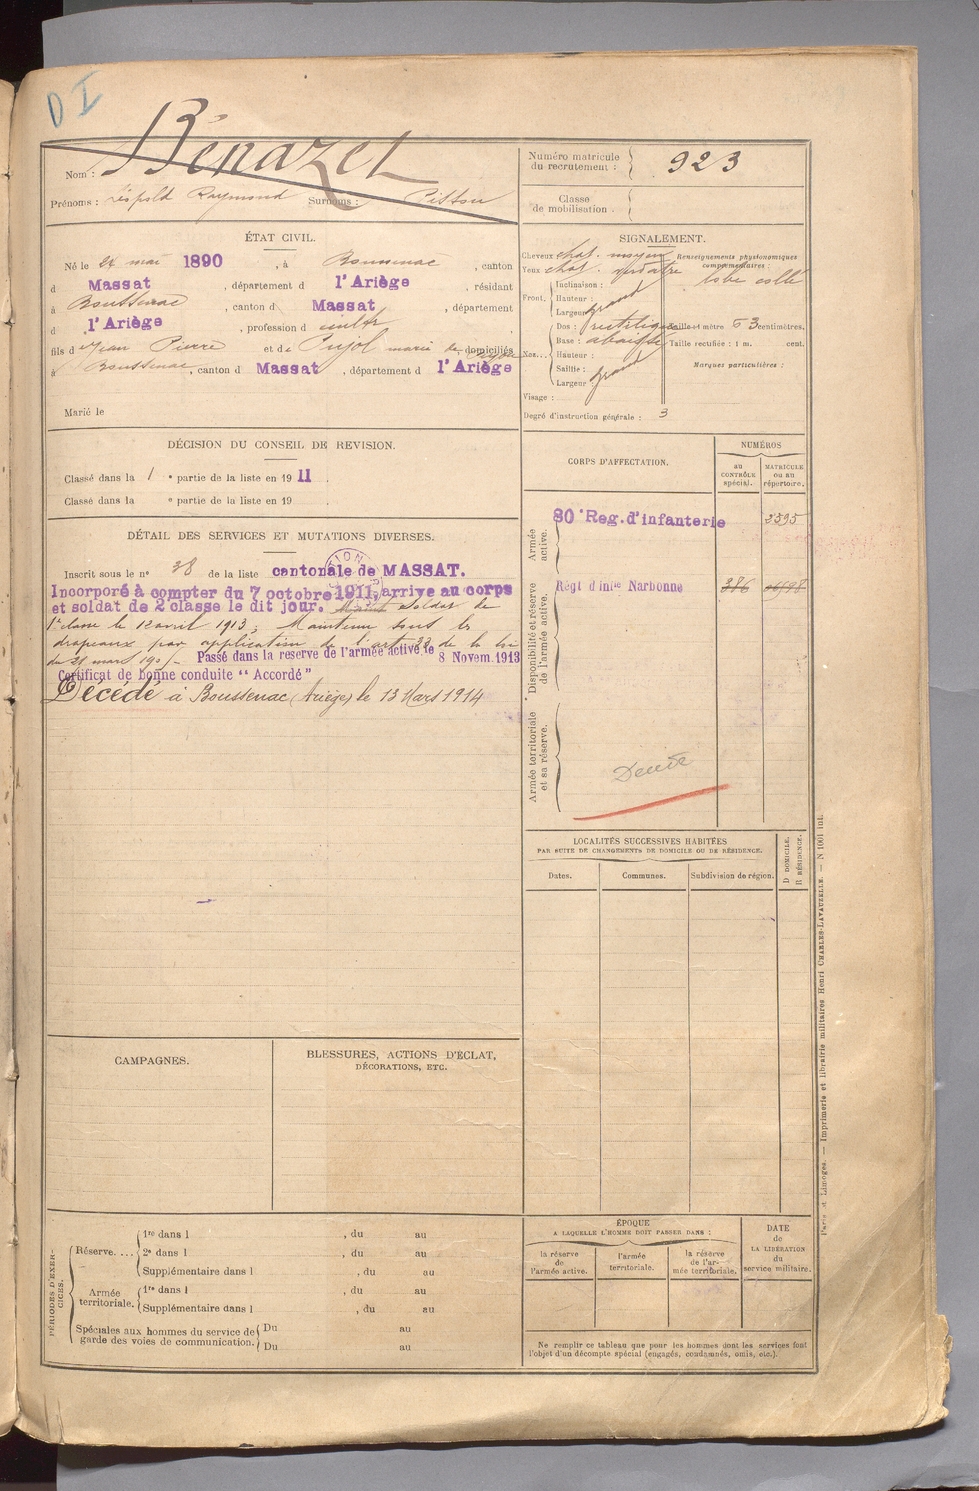 D I
Bénazet
Nom :
Prénoms : Léopold Raymond Surnoms : Pistou
Numéro matricule du recrutement : 923
Classe de mobilisation :
ÉTAT CIVIL.
Né le 24 mai 1890, à Boussenac, canton
d Massat, département d l'Ariège, résidant
à Boussenac, canton d Massat, département
d l'Ariège, profession d cultr,
fils d Jean Pierre et de Pujol marie domiciliés
à Boussenac, canton d Massat, département d l'Ariège
Marié le
SIGNALEMENT.
Cheveux chat. moyen
Yeux chat.
Renseignements physionomiques complémentaires :
lobe collé
Front.
Inclinaison :
Hauteur :
Largeur : grand
Nez...
Dos : rectiligne
Base : abaissée
Hauteur :
Saillie :
Largeur : grand
Taille 1 mètre 63 centimètres.
Taille rectifiée : 1 m. cent.
Marques particulières :
Visage :
Degré d'instruction générale : 3
DÉCISION DU CONSEIL DE REVISION.
Classé dans la 1 e partie de la liste en 1911.
Classé dans la e partie de la liste en 19 .
DÉTAIL DES SERVICES ET MUTATIONS DIVERSES.
Inscrit sous le n° 38 de la liste cantonale de MASSAT.
Incorporé à compter du 7 octobre 1911, arrive au corps
et soldat de 2e classe le dit jour. Soldat de
1e classe le 12 avril 1913. Maintenu sous les
drapeaux par application de l'art 33 de la loi
du 21 mars 1905. Passé dans la reserve de l'armée active, le 8 Novem. 1913
Certificat de bonne conduite "Accordé"
Décédé à Boussenac (Ariège) le 13 Mars 1914
CORPS D'AFFECTATION.
NUMÉROS
au CONTRÔLE spécial.
MATRICULE ou au répertoire.
Armée active.
80e Reg. d'infanterie 2595
Disponibilité et réserve de l'armée active.
Régt d'inf.ie Narbonne 386
Armée territoriale et sa réserve.
Décédé
LOCALITÉS SUCCESSIVES HABITÉES
PAR SUITE DE CHANGEMENTS DE DOMICILE OU DE RÉSIDENCE.
Dates. Communes. Subdivision de région.
D DOMICILE.
R RÉSIDENCE.
CAMPAGNES.
BLESSURES, ACTIONS D'ÉCLAT,
DÉCORATIONS, ETC.
PÉRIODES D'EXERCICES.
Réserve....
1re dans l , du au
2e dans l , du au
Supplémentaire dans l , du au
Armée territoriale.
1re dans l , du au
Supplémentaire dans l , du au
Spéciales aux hommes du service de garde des voies de communication.
Du au
Du au
ÉPOQUE
A LAQUELLE L'HOMME DOIT PASSER DANS :
la réserve de l'armée active.
l'armée territoriale.
la réserve de l'armée territoriale.
DATE de LA LIBÉRATION du service militaire.
Ne remplir ce tableau que pour les hommes dont les services font
l'objet d'un décompte spécial (engagés, condamnés, omis, etc.).
Paris et Limoges. — Imprimerie et librairie militaires Henri CHARLES-LAVAUZELLE. — N 1001 int.